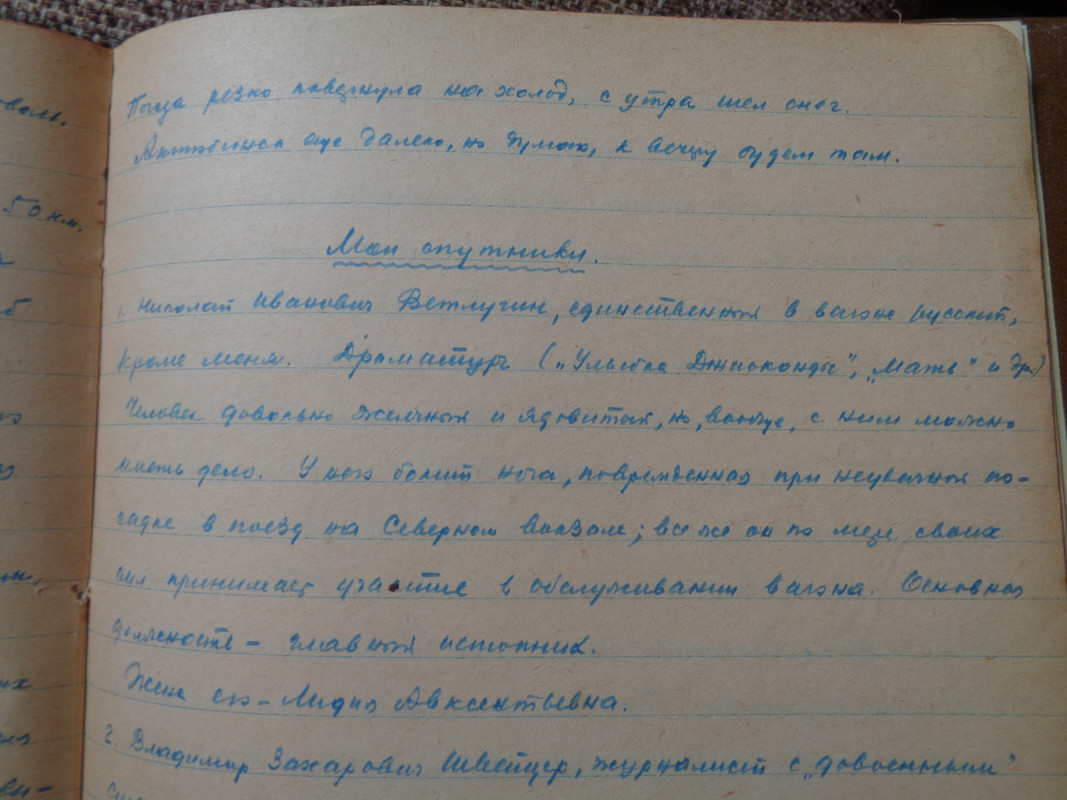 Погода резко повернула на холод, с утра шел снег.
Актюбинск еще далеко, но думаю, к вечеру будем там.
Мои спутники.
1. Николай Иванович Ветлугин, единственный в вагоне русский,
кроме меня. Драматург („Улыбка Джиоконды“, „Мать“ и др.)
Человек довольно желчный и ядовитый, но, вообще, с ним можно
иметь дело. У него болит нога, поврежденная при неудачной по-
садке в поезд на Северном вокзале; все же он по мере своих
сил принимает участие в обслуживании вагона. Основная
должность – главный истопник.
Жена его – Лидия Авксентьевна.
2. Владимир Захарович Швейцер, журналист с „довоенным“
воль,
50 км.